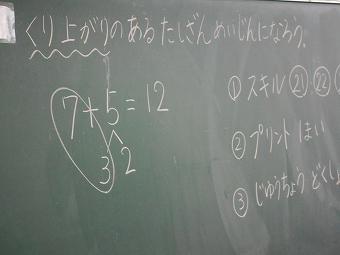 くり上がりのあるたしざんめいじんになろう。
7+5=12
3 2
① スキル ㉑ ㉒
② プリント はい
③ じゆうちょう どくしょ